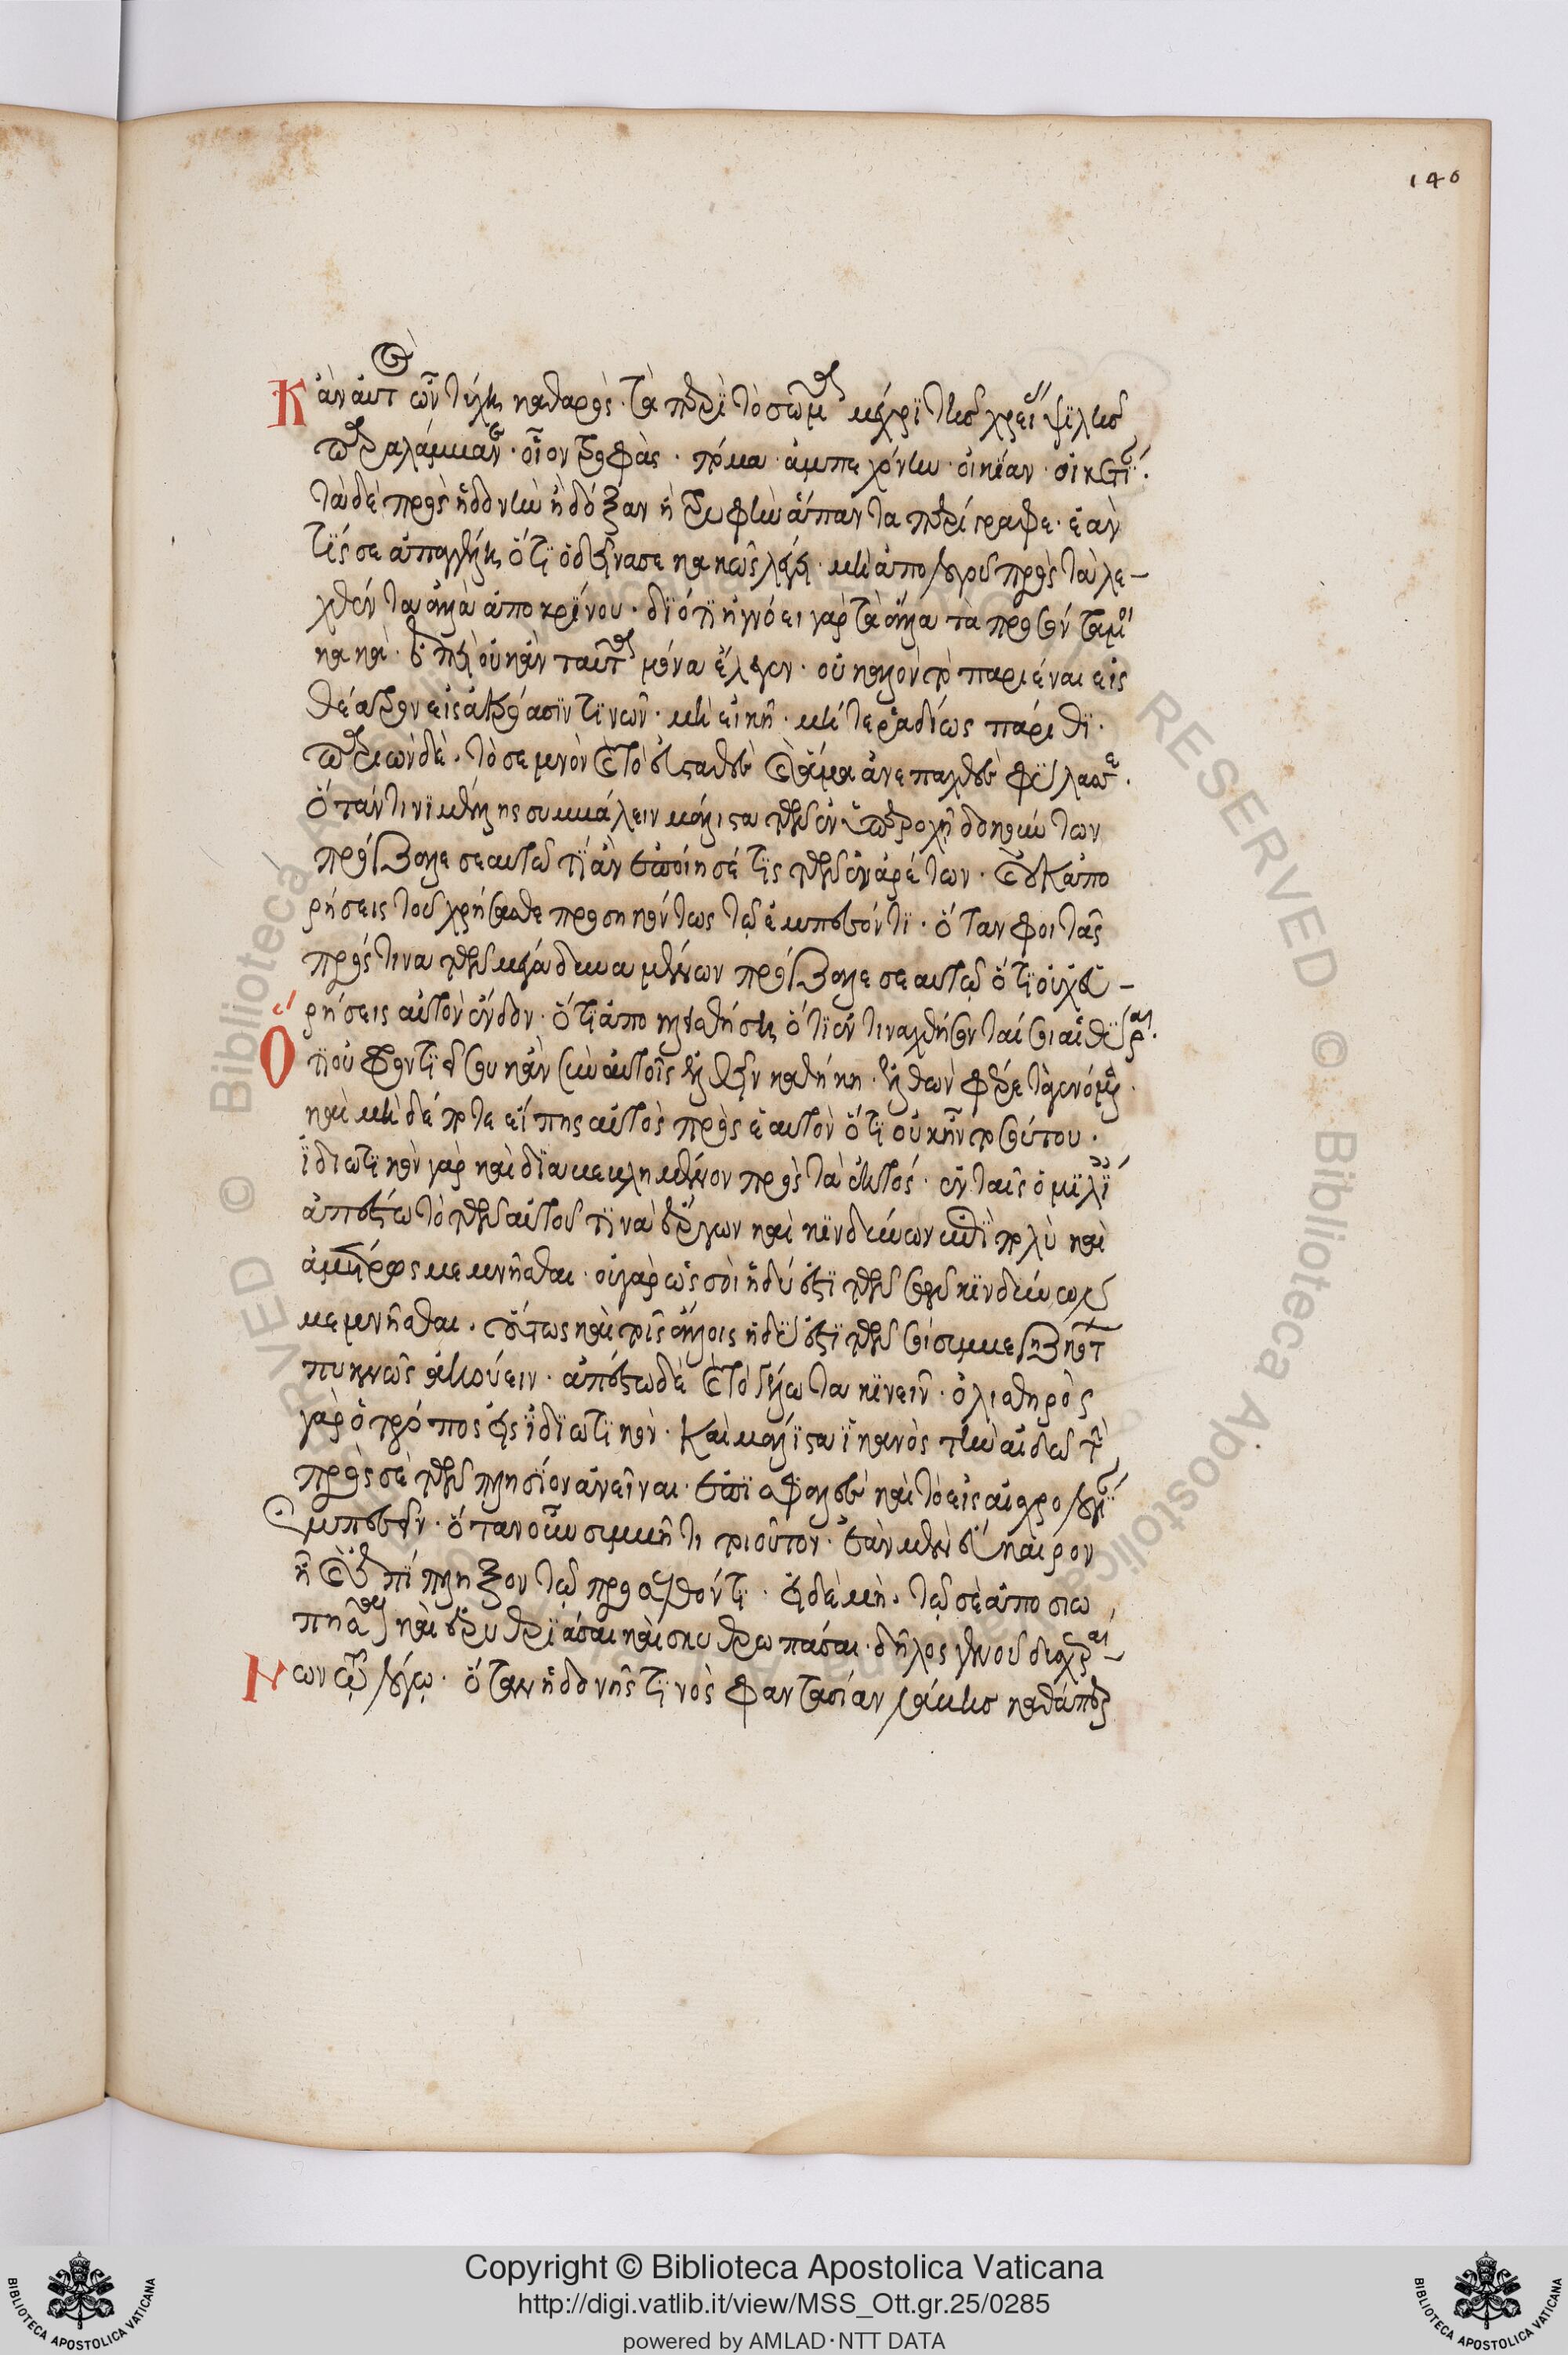 146
Κἂν αὐτὸς ὢν τύχῃς καθαρός. τὰ περὶ τὸ σῶμα μέχρι τῆς χρείας ψιλῆς
παραλάμβανε. οἷον τροφάς. πόμα. ἀμπεχόνην. οἰκίαν. οἰκετίαν.
τὰ δὲ πρὸς ἡδονὴν ἢ δόξαν ἢ τρυφὴν ἅπαντα περίγραφε. ἐάν
τίς σε ἀπαγγείλῃ ὅτι ὁ δεῖνα σε κακῶς λέγει. μὴ ἀπολογοῦ πρὸς τὰ λε-
χθέντα ἀλλὰ ἀποκρίνου. διότι ἠγνόει γὰρ τὰ ἄλλα τὰ προσόντα μοι
κακά. ἐπεὶ οὐκ ἂν ταῦτα μόνα ἔλεγεν. οὐ καλὸν τὸ παριέναι εἰς
θέατρον εἰς ἀκρόασίν τινων. μὴ εἰκῆ. μήτε ῥαδίως πάριθι.
παριὼν δὲ. τὸ σεμνὸν καὶ τὸ εὐσταθὲς καὶ ἅμα ἀνεπαχθὲς φύλασσε.
ὅταν τινὶ μέλλῃς συμβάλειν μάλιστα τῶν ἐν ὑπεροχῇ δοκούντων
πρόβαλε σεαυτῷ τί ἂν ἐποίησέ τις τῶν ἐναρέτων. καὶ οὐκ ἀπο
ρήσεις τοῦ χρήσασθαι προσηκόντως τῷ ἐμπεσόντι. ὅταν φοιτᾷς
πρός τινα τῶν μέγα δυναμένων πρόβαλε σεαυτῷ ὅτι οὐχ εὑ-
ρήσεις αὐτὸν ἔνδον. ὅτι ἀποκλεισθήσῃ ὅτι ἐντιναχθήσονταί σοι αἱ θύραι.
Ὅτι οὐ φροντιεῖ σου κἂν σὺν αὐτοῖς ἐλθεῖν καθήκῃ. ἐλθὼν φέρε τὰ γινόμενα.
καὶ μηδέποτε εἴπῃς αὐτὸς πρὸς ἑαυτὸν ὅτι οὐκ ἦν τοσούτου.
ἰδιωτικὸν γὰρ καὶ διαβεβλημένον πρὸς τὰ ἐκτός. ἐν ταῖς ὁμιλίαις
ἀπέστω τὸ τῶν αὐτοῦ τινὰ ἔργων καὶ κινδύνων ἐπὶ πολὺ καὶ
ἀμέτρως μεμνῆσθαι. οὐ γὰρ ὡς σοὶ ἡδύ ἐστι τῶν σῶν κινδύνων
μεμνῆσθαι. οὕτως καὶ τοῖς ἄλλοις ἡδύ ἐστι τῶν σοὶ συμβεβηκότων
πυκνῶς ἀκούειν. ἀπέστω δὲ καὶ τὸ γέλωτα κινεῖν. ὀλισθηρὸς
γὰρ ὁ τρόπος εἰς ἰδιωτικόν. καὶ μάλιστα ἱκανὸς τὴν αἰδῶ τὴν
πρὸς σὲ τῶν πλησίον ἀνεῖναι. ἐπισφαλὲς καὶ τὸ εἰς αἰσχρολογίαν
ἐμπεσεῖν. ὅταν οὖν συμβῇ τι τοιοῦτον. ἐὰν μὲν εὔκαιρον
ἦ καὶ ἐπίπληξον τῷ προσελθόντι. εἰ δὲ μὴ. τῷ σὲ ἀποσιω
πῆσαι καὶ ἐρυθριάσαι καὶ σκυθρωπάσαι. δῆλος γίνου δυσχεραί-
νων τῷ λόγῳ. ὅταν ἡδονῆς τινὸς φαντασίαν λάβῃς καθάπερ
Copyright © Biblioteca Apostolica Vaticana
http://digi.vatlib.it/view/MSS_Ott.gr.25/0285
powered by AMLAD·NTT DATA
BIBLIOTECA APOSTOLICA VATICANA
BIBLIOTECA APOSTOLICA VATICANA